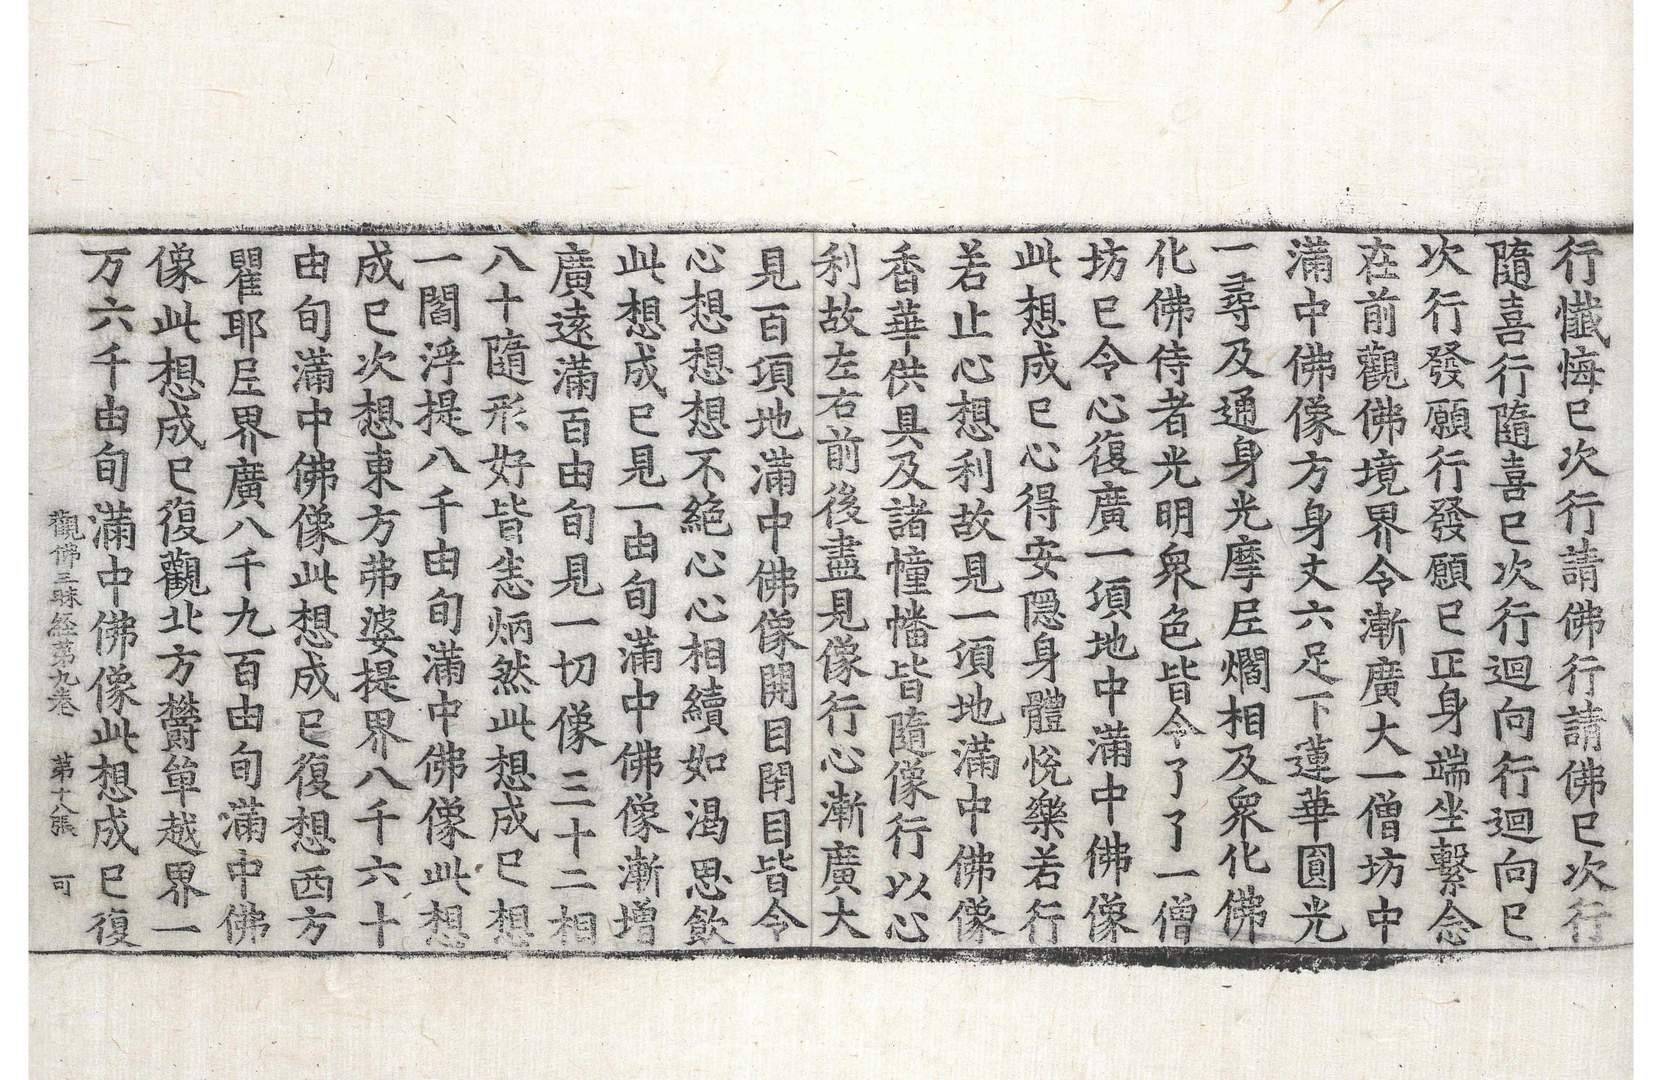 行懺悔已次行請佛行請佛已次行
隨喜行隨喜已次行迴向行迴向已
次行發願行發願已正身端坐繫念
在前觀佛境界令漸廣大一僧坊中
滿中佛像方身丈六足下蓮華圓光
一尋及通身光摩尼爓相及衆化佛
化佛侍者光明衆色皆令了了一僧
坊已令心復廣一頃地中滿中佛像
此想成已心得安隱身體悅樂若行
若止心想利故見一頃地滿中佛像
香華供具及諸幢幡皆隨像行以心
利故左右前後盡見像行心漸廣大
見百頃地滿中佛像開目閉目皆令
心想想想不絕心心相續如渴思飲
此想成已見一由旬滿中佛像漸增
廣遠滿百由旬見一切像三十二相
八十隨形好皆悉炳然此想成已想
一閻浮提八千由旬滿中佛像此想
成已次想東方弗婆提界八千六十
由旬滿中佛像此想成已復想西方
瞿耶尼界廣八千九百由旬滿中佛
像此想成已復觀北方欝單越界一
万六千由旬滿中佛像此想成已復
觀佛三昧経第九卷 第十八張 可